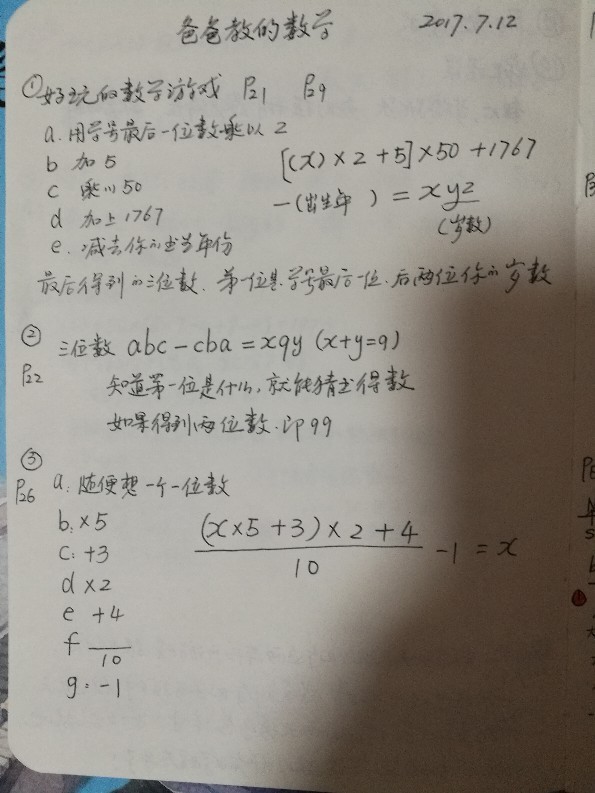 爸爸教的数学 2017.7.12
①好玩的数学游戏 P21 P29
a. 用学号最后一位数乘以 2
b 加 5
[(x)×2+5]×50+1767
c 乘以50
-(出生年 ) = xyz
d 加上1767
(岁数)
e. 减去你的出生年份
最后得到的三位数. 第一位是学号最后一位. 后两位你的岁数
② 三位数 abc-cba=x9y (x+y=9)
P22
知道第一位是什么, 就能猜出得数
如果得到两位数. 即99
③
P26 a. 随便想一个一位数
b: ×5
c: +3
(x×5+3)×2+4
10
-1 = x
d ×2
e +4
f 10
g. -1